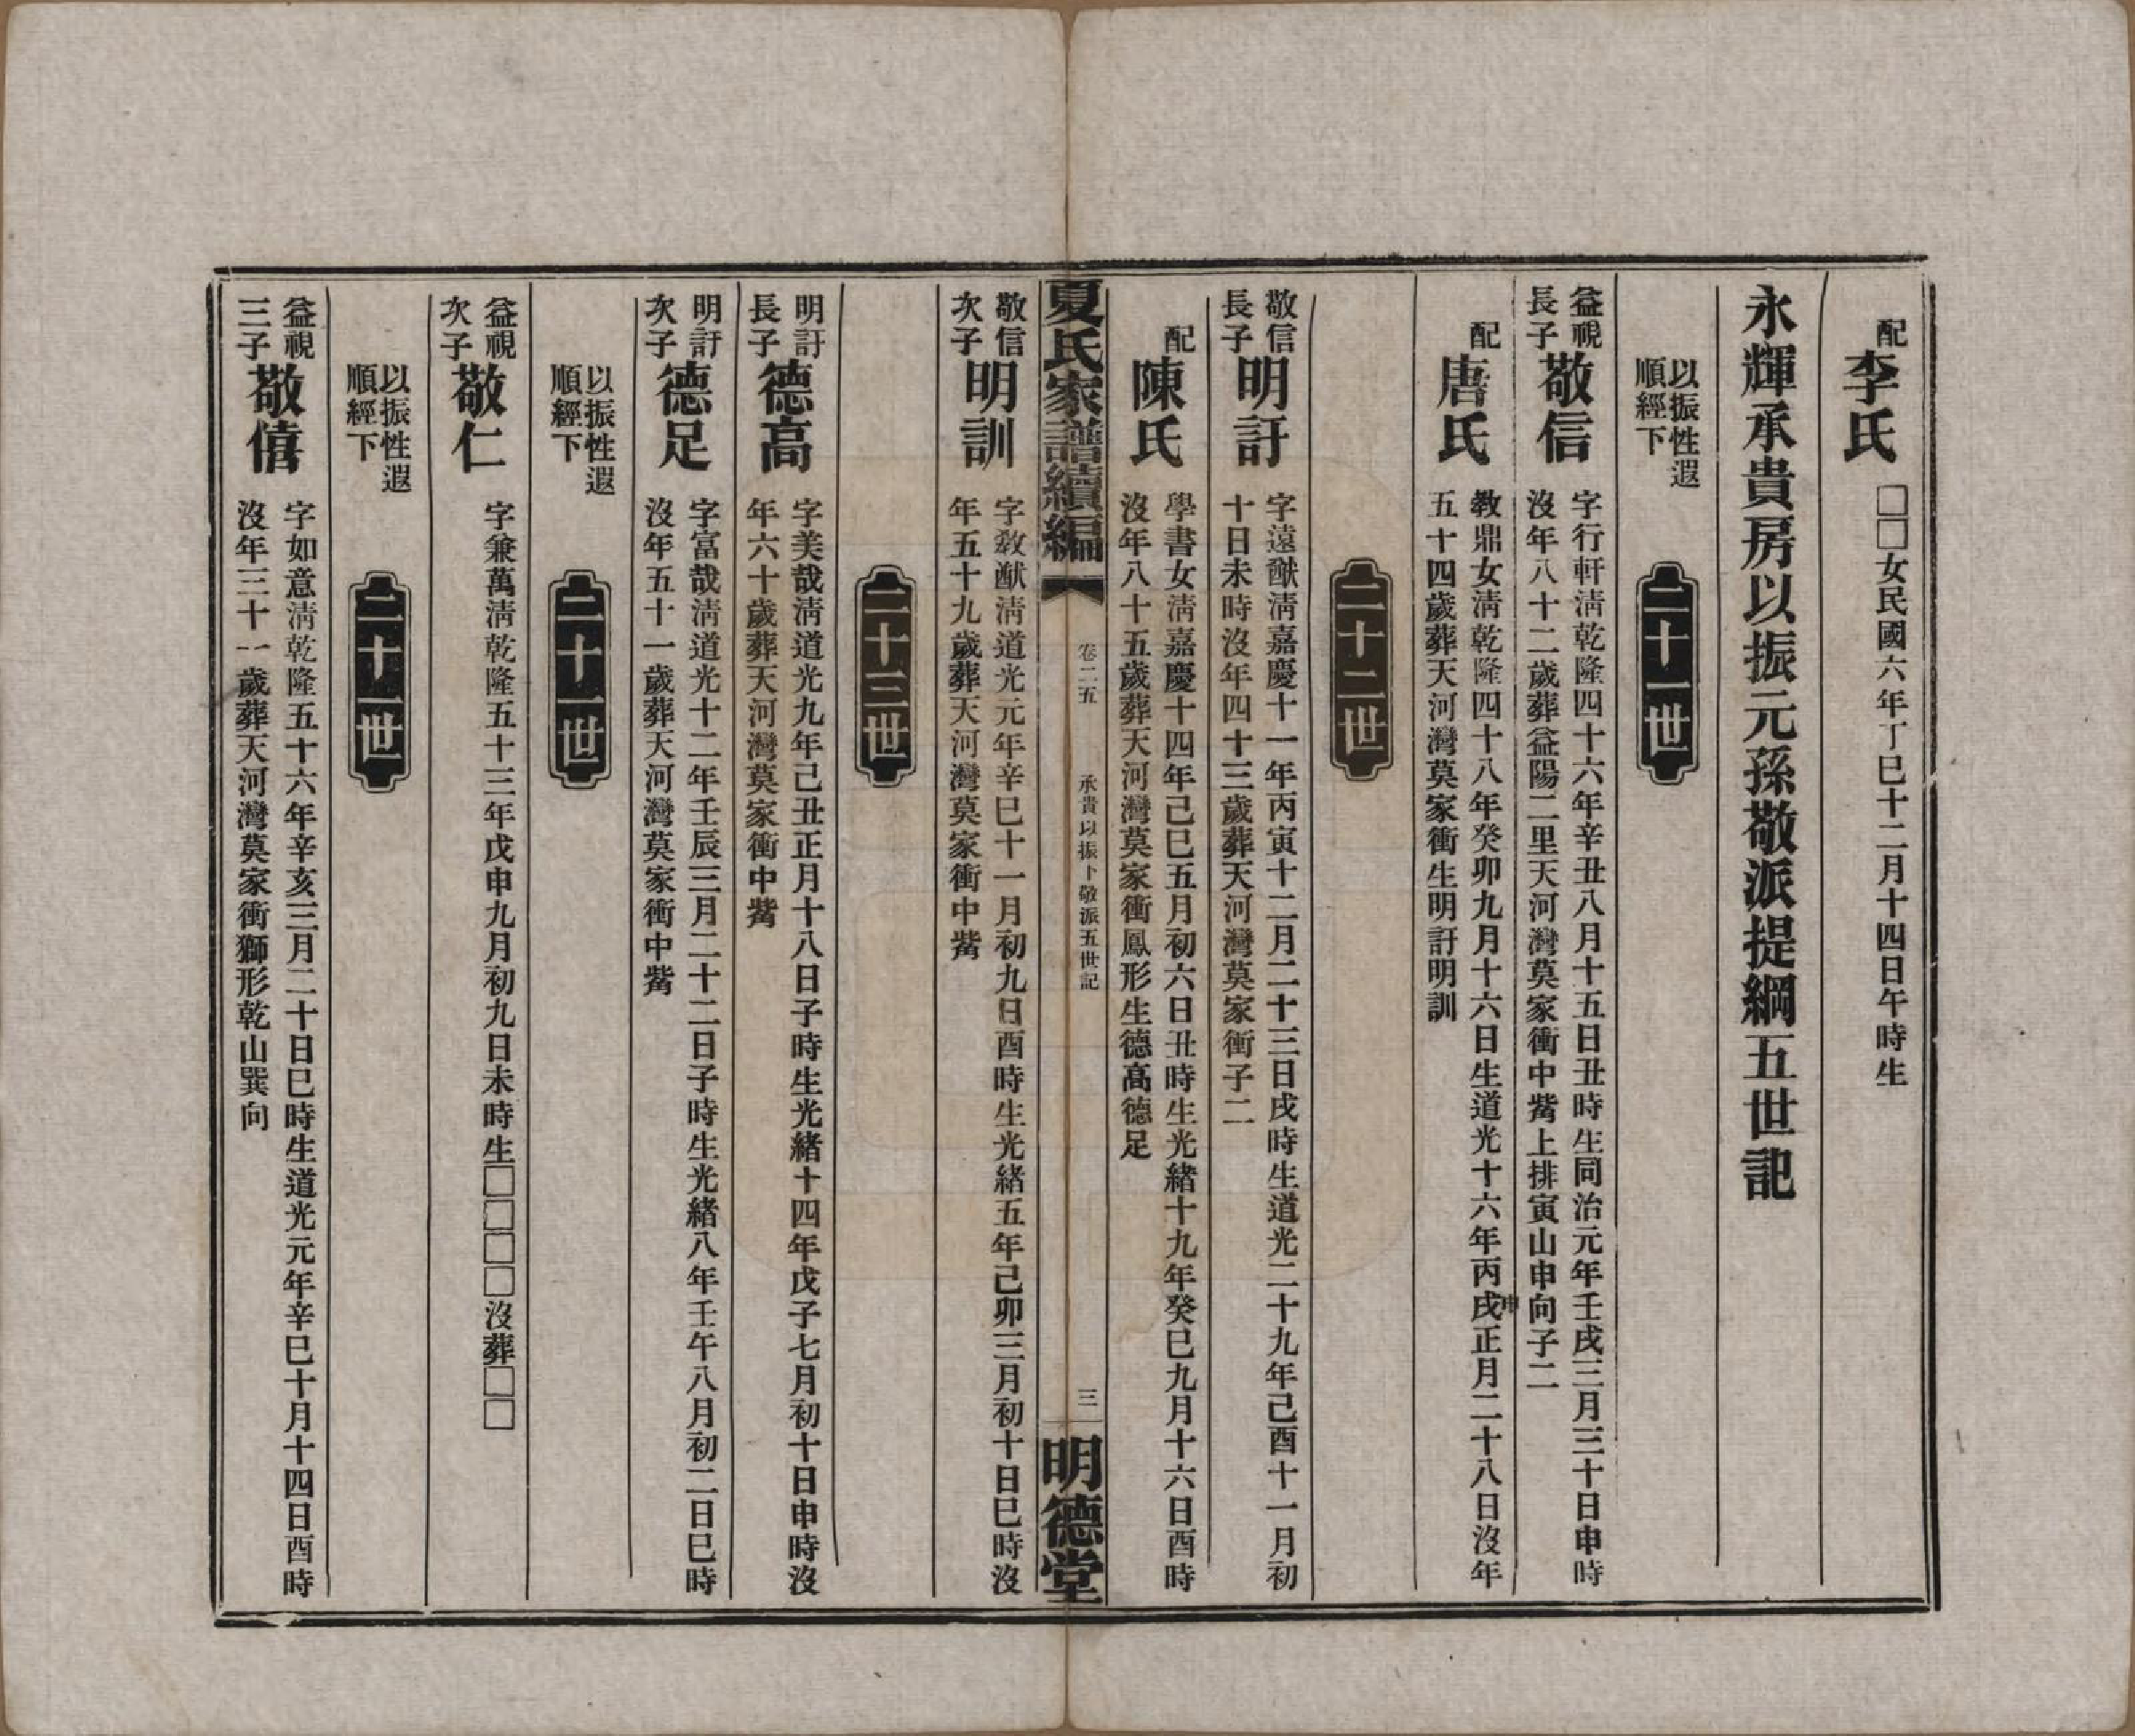 配
李氏
□□女民國六年丁巳十二月十四日午時生
永輝承貴房以振元孫敬派提綱五世記
以振性遐
順經下
二十一世
益視
長子
敬信
字行軒淸乾隆四十六年辛丑八月十五日丑時生同治元年壬戌三月三十日申時
沒年八十二歲葬益陽二里天河灣莫家衝中觜上排寅山申向子二
配
唐氏
教鼎女淸乾隆四十八年癸卯九月十六日生道光十六年丙申戌正月二十八日沒年
五十四歲葬天河灣莫家衝生明訏明訓
二十二世
敬信
長子
明訏
字遠猷淸嘉慶十一年丙寅十二月二十三日戌時生道光二十九年己酉十一月初
十日未時沒年四十三歲葬天河灣莫家衝子二
配
陳氏
學書女淸嘉慶十四年己巳五月初六日丑時生光緒十九年癸巳九月十六日酉時
沒年八十五歲葬天河灣莫家衝鳳形生德高德足
夏氏家譜續編
卷二五
承貴以振卜敬派五世記
三
明德堂
敬信
次子
明訓
字敎猷淸道光元年辛巳十一月初九日酉時生光緒五年己卯三月初十日巳時沒
年五十九歲葬天河灣莫家衝中觜
二十三世
明訏
長子
德高
字美哉淸道光九年己丑正月十八日子時生光緒十四年戊子七月初十日申時沒
年六十歲葬天河灣莫家衝中觜
明訏
次子
德足
字富哉淸道光十二年壬辰三月二十二日子時生光緒八年壬午八月初二日巳時
沒年五十一歲葬天河灣莫家衝中觜
以振性遐
順經下
二十一世
益視
次子
敬仁
字兼萬淸乾隆五十三年戊申九月初九日未時生□□□□沒葬□□
以振性遐
順經下
二十一世
益視
三子
敬僖
字如意淸乾隆五十六年辛亥三月二十日巳時生道光元年辛巳十月十四日酉時
沒年三十一歲葬天河灣莫家衝獅形乾山巽向